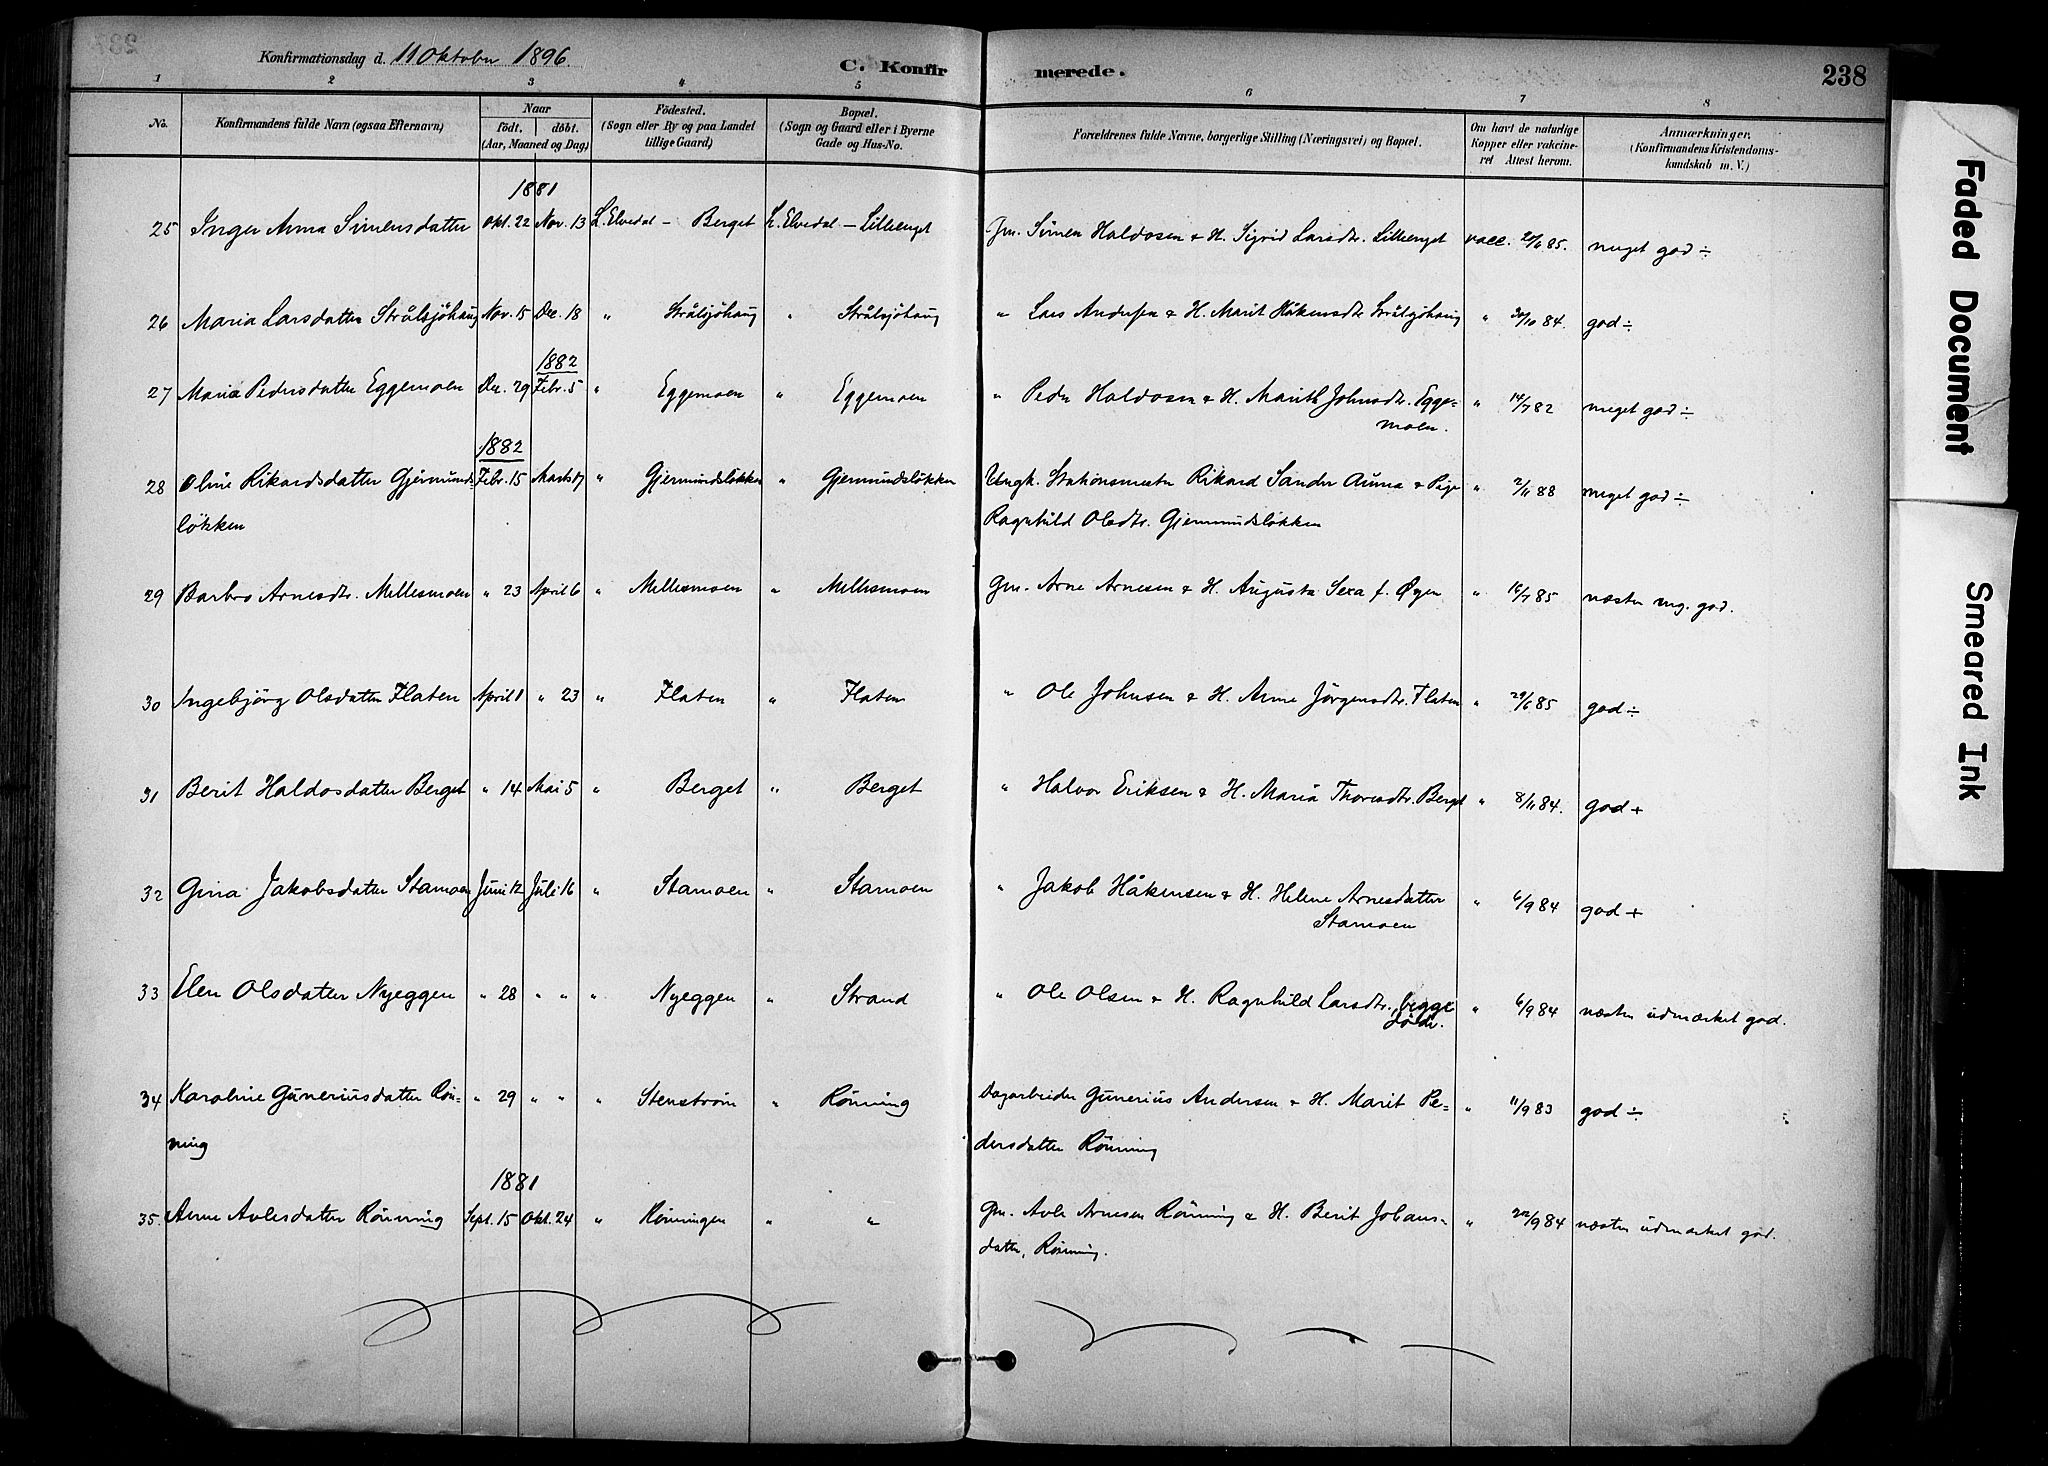 Konfirmationsdag d. 11 Oktober 1896.
C. Konfir merede.
238
1 2 3 4 5 6 7 8
No.
Konfirmandens fulde Navn (ogsaa Efternavn)
Naar
født, døbt.
(Aar, Maaned og Dag)
Fødested.
(Sogn eller By og paa Landet
tillige Gaard)
Bopæl.
(Sogn og Gaard eller i Byerne
Gade og Hus-No.
Forældrenes fulde Navne, borgerlige Stilling (Næringsvei) og Bopæl.
Om havt de naturlige
Kopper eller vakcine-
ret Attest herom.
Anmærkninger.
(Konfirmandens Kristendoms-
kundskab m. V.)
1881
25 Inger Anna Simensdatter Okt. 22 Nov. 13 L. Elvedal – Berget L. Elvedal – Lillenget Gm. Simen Haldosen & H. Sigrid Larsdtr. Lillenget vacc. 27/6 85. meget god ÷
26 Maria Larsdatter Strålsjöhaug Nov. 15 Dec. 18 " Strålsjöhaug " Strålsjöhaug " Lars Andersen & H. Marit Håkensdtr Strålsjöhaug " 30/10 84. god ÷
1882
27 Maria Pedersdatter Eggemoen Dec. 29 Febr. 5 " Eggemoen " Eggemoen " Peder Haldosen & H. Marith Johnsdtr. Egge- " 14/7 82 meget god ÷
moen.
1882
28 Oline Rikardsdatter Gjermunds- Febr. 15 Marts 17 " Gjermundsløkken " Gjermundsløkken Ungk. Stationsmester Rikard Sander Auma & Pige " 2/11 88 meget god ÷
løkken Ragnhild Olsdtr. Gjermundsløkken
29 Barbro Arnesdtr. Mellesmoen " 23 April 6 " Mellesmoen " Mellesmoen Gm. Arne Arnesen & H. Augusta Sexa f. Øyen " 16/7 85 næsten mg. god.
30 Ingebjörg Olsdatter Flaten April 1 " 23 " Flaten " Flaten " Ole Johnsen & H. Anne Jörgensdtr. Flaten " 29/6 85 god ÷
31 Berit Haldosdatter Berget " 14 Mai 5 " Berget " Berget " Halvor Eriksen & H. Maria Thoresdtr. Berget " 8/11 84. god +
32 Gina Jakobsdatter Stamoen Juni 12 Juli 16 " Stamoen " Stamoen " Jakob Håkensen & H. Helene Arnesdatter " 6/9 84 god +
Stamoen
33 Elen Olsdatter Nyeggen " 28 " " " Nyeggen " Strand " Ole Olsen & H. Ragnhild Larsdtr., begge " 6/9 84 næsten udmærket god.
döde.
34 Karoline Guneriusdatter Rön- " 29 " " " Stenström " Rönning Dagarbeider Gunerius Andersen & H. Marit Pe- " 11/9 83 god ÷
ning dersdatter Rönning
1881
35. Anne Avlesdatter Rönning Sept. 15 Okt. 24 " Rönningen " " Gm. Avle Arnesen Rönning & H. Berit Johans- " 22/9 84 næsten udmærket god.
datter, Rönning.
Faded Document
Smeared Ink